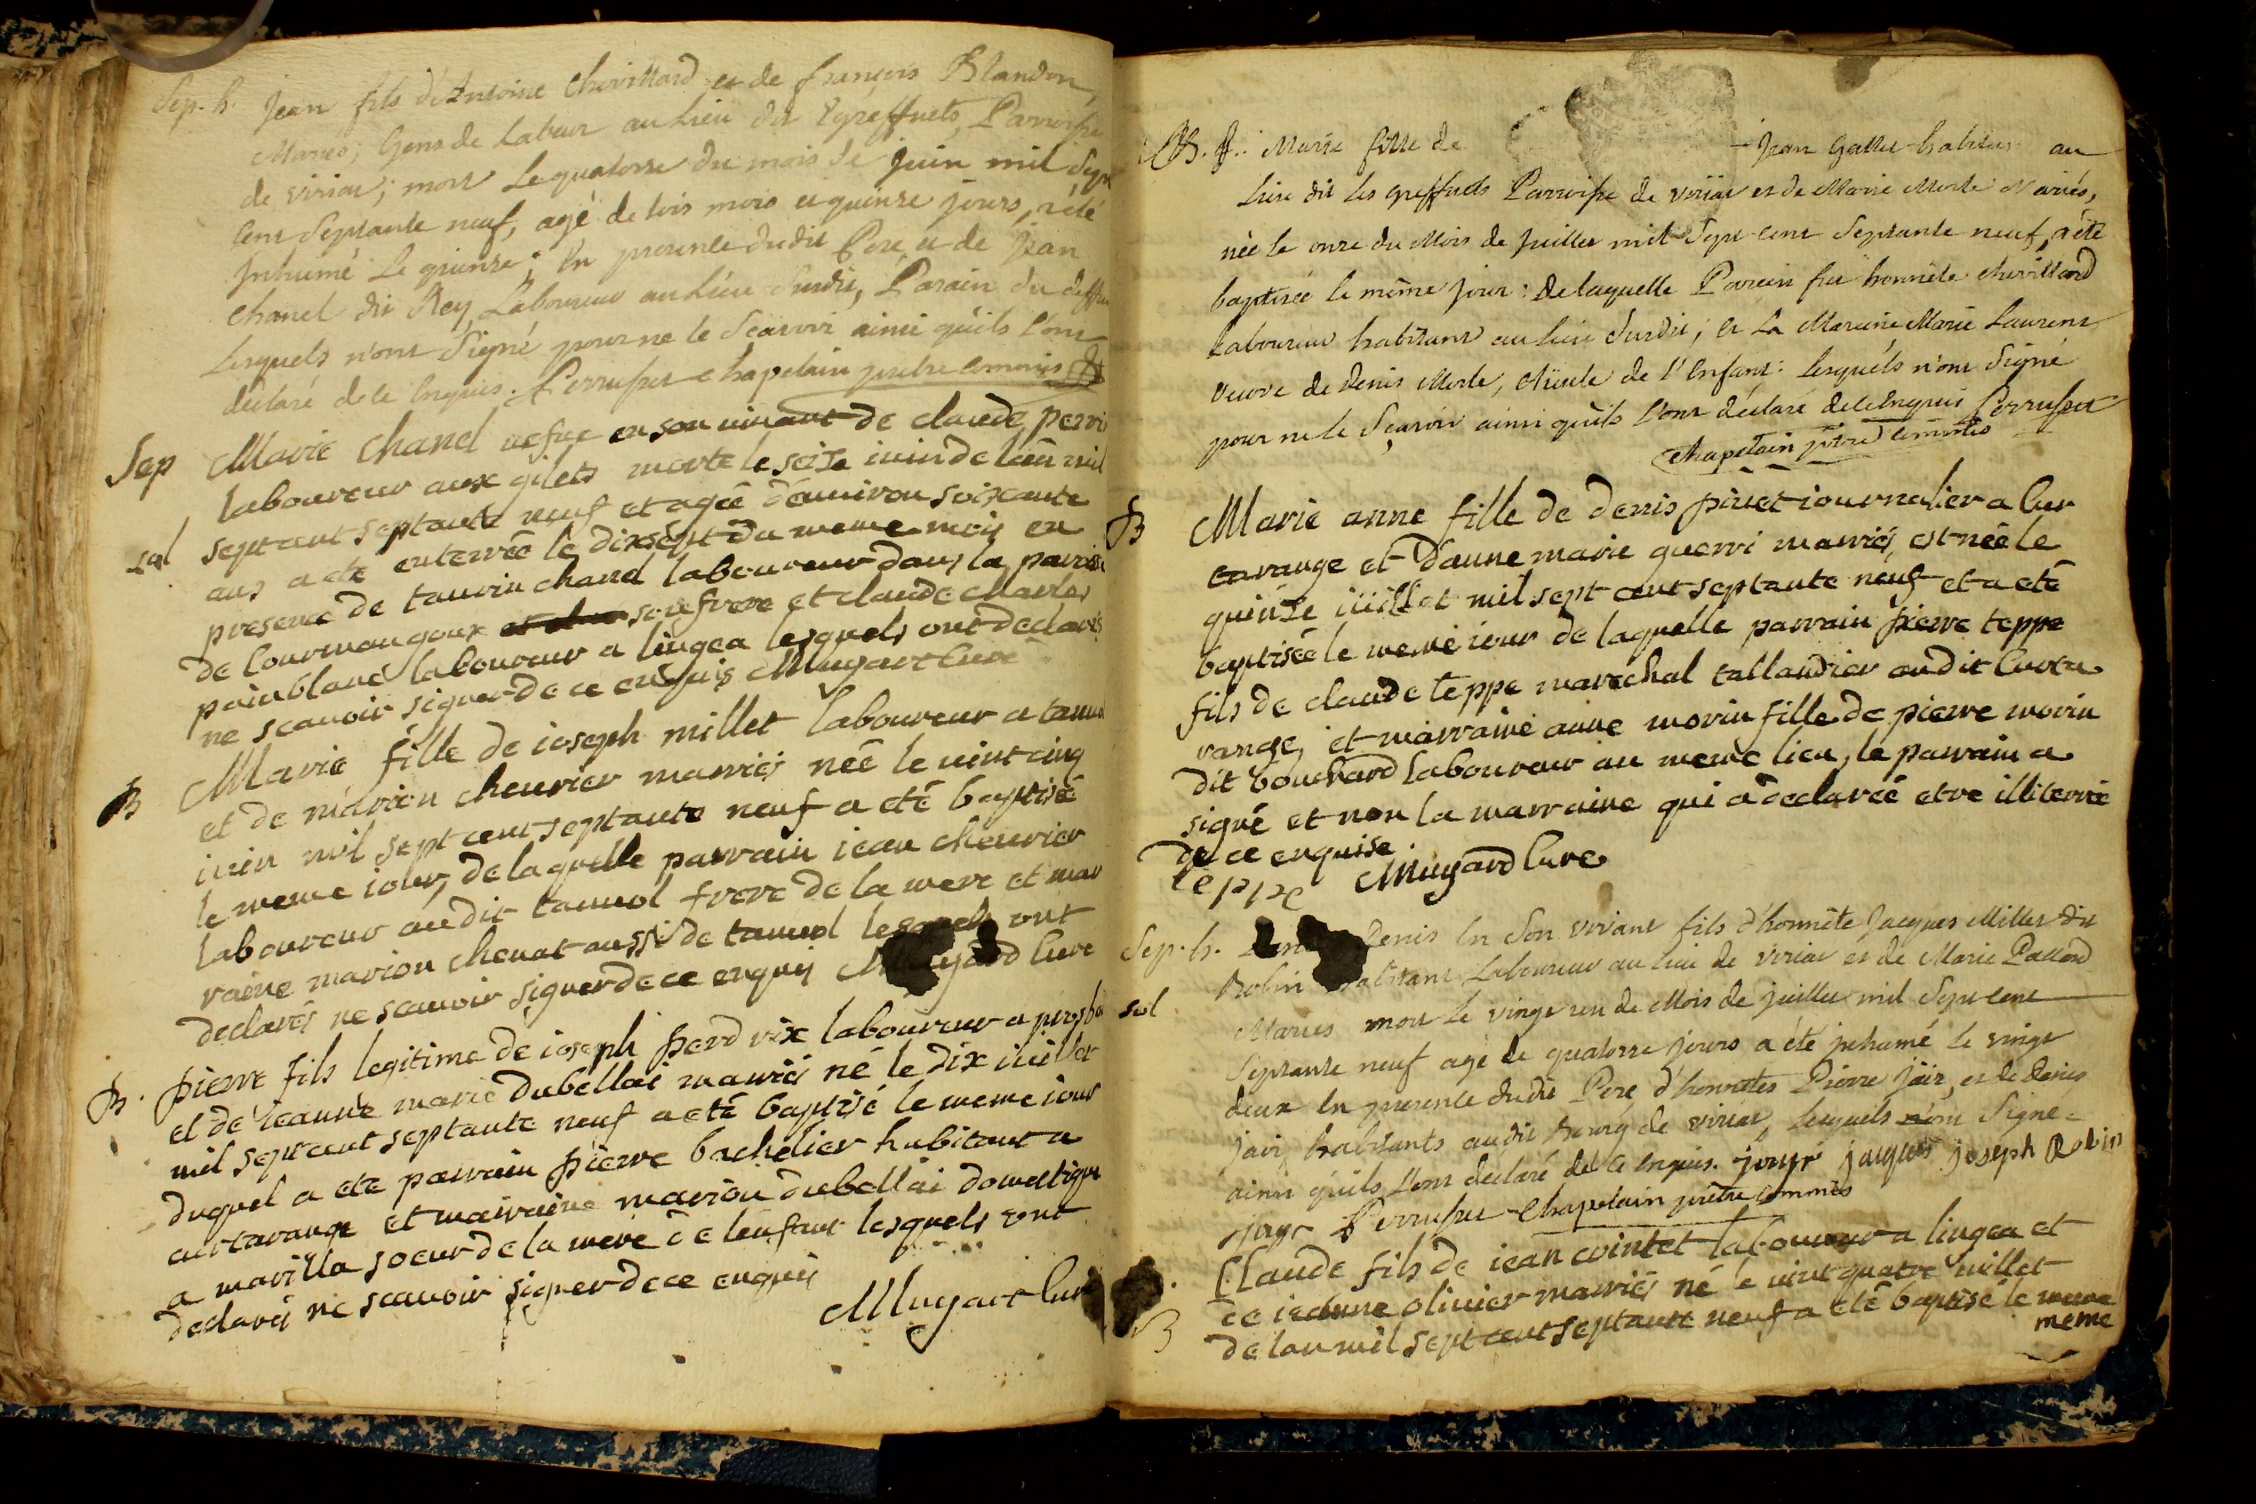 Sep. h. Jean fils d'Antoine Chevillard et de françois Blandon,
Mariés; Gens de Labeur au Lieu dit Egreffuets, Parroisse
de viriat; mort Le quatorse du mois de Juin mil Sept
Cent Septante neuf, agé de trois mois et quinse jours, a été
Inhumé Le quinse; En presence dudit Pere et de Jean
Chanel dit Rey Laboureur au Lieu Susdit, Parain du deffunt
Lesquels n'ont Signé pour ne le Scavoir ainsi qu'ils l'ont
déclaré de ce Enquis. Perruset chapelain prêtre commis
Sep Marie Chanel vefve en son vivant de claude perri
laboureur aux gilets morte le seise iuin de lan mil
sept cent septante neuf et agée denuiron soixante
ans a eté enterrée le dixsept du meme mois en
presence de tauvin chanel laboureur dans la parroisse
de courmangoux son frere et claude charles
painblanc laboureur a lingea lesquels ont declarés
ne scauoir signer de ce enquis Muyart Curé
B Marie fille de ioseph millet laboureur a tanuol
et de marion cheurier mariés née le uint cinq
iuin mil sept cent septante neuf a eté baptisé
le meme iour, de laquelle parrain iean cheurier
laboureur audit tanuol frere de la mere et mar
raine marion chenat aussi de tanuol lesquels ont
declarés ne scauoir signer de ce enquis Muyard Curé
B. pierre fils legitime de ioseph perdrix laboureur a
et de ieanne marie dubellai mariés né le dix iuillet
mil sept cent septante neuf a eté baptisé le meme iour
duquel a eté parrain pierre bachelier habitant a
curtarange et marraine marion dubellai domestique
a marilla soeur de la mere de lenfant lesquels ont
declarés ne scauoir signer de ce enquis
Muyart Curé
B. f. Marie fille de Jean Gallet habitant au
Lieu dit les greffuets Parroisse de viriat et de Marie Merle Mariés,
née le onze du Mois de Juillet mil Sept cent Septante neuf, a été
baptisée le même jour: de laquelle Parein fut honnête chevillard
Laboureur habitant au lieu Susdit; et La Maraine Marie Laurent
veuve de Denis Merle, Aïeule de l'Enfant: Lesquels n'ont Signé
pour ne le Sçavoir ainsi qu'ils l'ont déclaré de ce Enquis Perruset
chapelain prêtre commis
B Marie anne fille de denis piuet iournalier a Cur
tarange et danne marie guerri mariés, est née le
quinse iuillet mil sept cent septante neuf et a eté
baptisée le meme iour de laquelle parrain pierre teppe
fils de claude teppe marechal tallandier audit Curta
range, et marraine anne morin fille de pierre morin
dit bouchard laboureur au meme lieu, le parrain a
signé et non la marraine qui a declarée etre illiterrée
de ce enquise
teppe Muyard Cure
Sep. h. Denis En Son vivant fils d'honnête Jacques Millet dit
Robin habitant Laboureur au lieu de viriat et de Marie Pallard
Mariés mort le vingt un de Mois de juillet mil Sept cent
Septante neuf agé de quatorse jours a été inhumé le vingt
deux En presence dudit Pere d'honnêtes Pierre jäir et de Denis
jäir, habitants audit Bourg de viriat, lesquels ont Signé
ainsi qu'ils l'ont declaré de ce Enquis. jayr jacques joseph Robin
jayr Perruset Chapelain prêtre commis
Claude fils de iean cointet laboureur a lingea et
B de ieanne oliuier mariés né le uint quatre iuillet
de lan mil sept cent septante neuf a eté baptisé le meme
meme